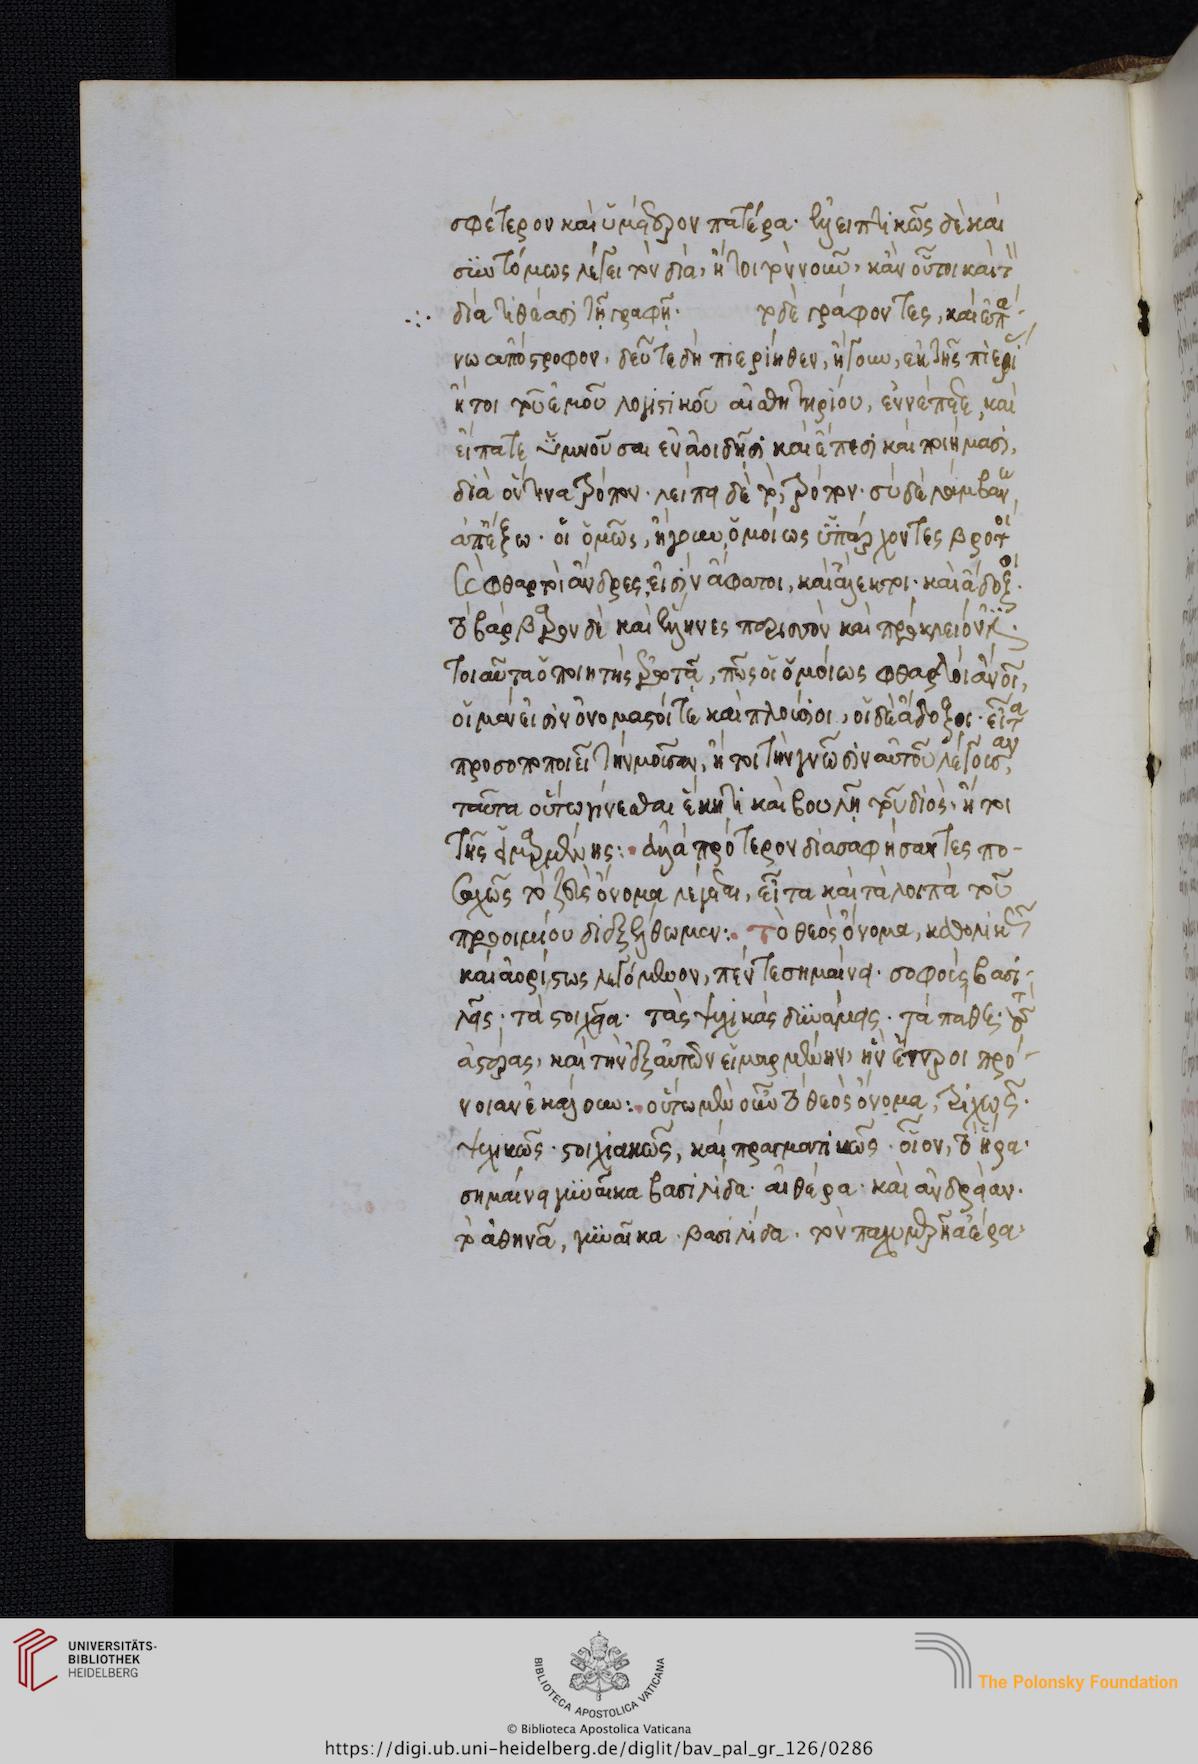 σφέτερον καὶ ὑμέτερον πατέρα· ἐλλειπτικῶς δὲ καὶ
συντόμως λέγει τὸν δία, ἤτοι τὸν νοῦν, κἂν οὗτοι καὶ
διατιθέασι τῇ γραφῇ· τὸ δὲ γράφοντες, καὶ
ἀπόστροφον, δεῦτε δὴ πιερίηθεν, ἤγουν, ἐκ τῆς πιερί
ἤτοι τοῦ ἐμοῦ λογιστικοῦ αἰσθητηρίου, ἐννέπετε, καὶ
εἴπατε ὑμνοῦσαι ἐν ἀοιδῆσι καὶ ἔπεσι καὶ ποιήμασι,
διὰ ὅντινα τρόπον· λείπει δὲ τὸ, τρόπον· σὺ δὲ λάμβανε
ἀπέξω· οἱ ὁμῶς, ἤγουν ὁμοίως ὑπάρχοντες βροτοὶ
φθαρτοὶ ἄνδρες εἰσὶν ἄφατοι, καὶ ἄλεκτοι· καὶ ἄδοξοι·
τὸ βάρβαρον δὲ καὶ ἕλληνες
τοιαῦτα ὁ ποιητὴς ἐρωτᾷ, πῶς οἱ ὁμοίως φθαρτοὶ ἄνοι,
οἱ μὲν εἰσὶν ὀνομαστοί τε καὶ πλούσιοι, οἱ δὲ ἄδοξοι· εἶτα
προσοποποιεῖ τὴν μοῦσαν, ἤτοι τὴν γνῶσιν αὐτοῦ λέγουσαν,
ταῦτα οὕτω γίνεσθαι ἕκητι καὶ βουλῇ τοῦ διός, ἤτοι
τῆς εἱμαρμένης: ἀλλὰ πρότερον διασαφήσαντες πο-
σαχῶς τὸ ζεὺς ὄνομα λέγεται, εἶτα καὶ τὰ λοιπὰ τοῦ
προοιμίου διεξέλθωμεν: Τὸ θεὸς ὄνομα, καθολικῶς
καὶ ἀορίστως λεγόμενον, πέντε σημαίνει· σοφοὺς βασι-
λεῖς· τὰ στοιχεῖα· τὰς ψυχικὰς δυνάμεις· τὰ πάθη· τοὺς
ἀστέρας, καὶ τὴν ἐξ αὐτῶν εἱμαρμένην, ἣν ἔνιοι πρό-
νοιαν ἐκάλουν: οὕτω μὲν οὖν τὸ θεὸς ὄνομα,
ψυχικῶς· στοιχειακῶς, καὶ πραγματικῶς· οἷον, τὸ ἥρα·
σημαίνει γυναῖκα βασιλίδα· αἰθέρα· καὶ ἀνδρείαν·
τὸ ἀθηνᾶ, γυναῖκα βασιλίδα· τὸν παχυμερῆ ἀέρα·
UNIVERSITÄTS-
BIBLIOTHEK
HEIDELBERG
BIBLIOTECA APOSTOLICA VATICANA
The Polonsky Foundation
© Biblioteca Apostolica Vaticana
https://digi.ub.uni-heidelberg.de/diglit/bav_pal_gr_126/0286